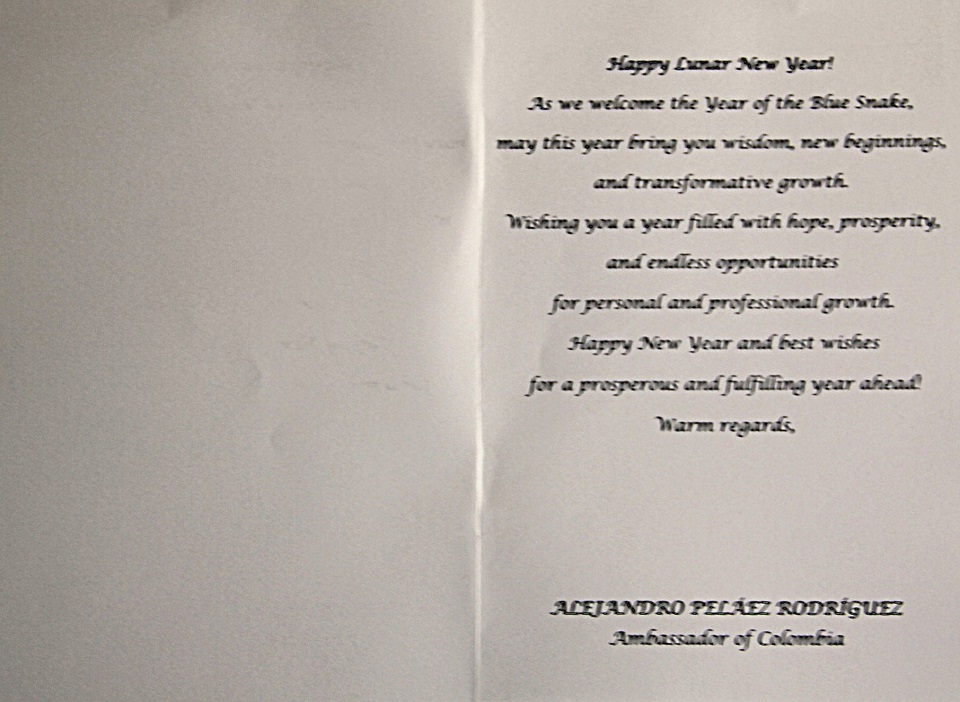 Happy Lunar New Year!
As we welcome the Year of the Blue Snake,
may this year bring you wisdom, new beginnings,
and transformative growth.
Wishing you a year filled with hope, prosperity,
and endless opportunities
for personal and professional growth.
Happy New Year and best wishes
for a prosperous and fulfilling year ahead!
Warm regards,
ALEJANDRO PELÁEZ RODRÍGUEZ
Ambassador of Colombia